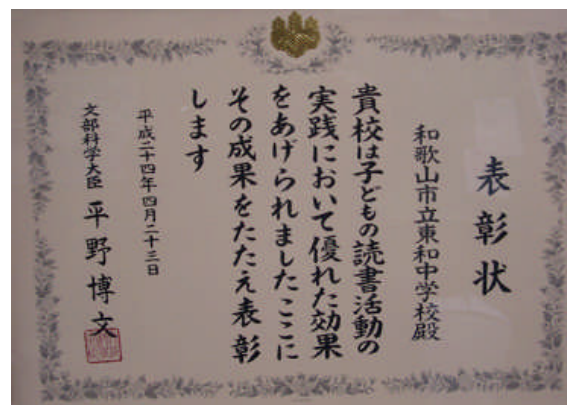 表彰状
和歌山市立東和中学校殿
貴校は子どもの読書活動の
実践において優れた効果
をあげられましたここに
その成果をたたえ表彰
します
平成二十四年四月二十三日
文部科学大臣 平野博文